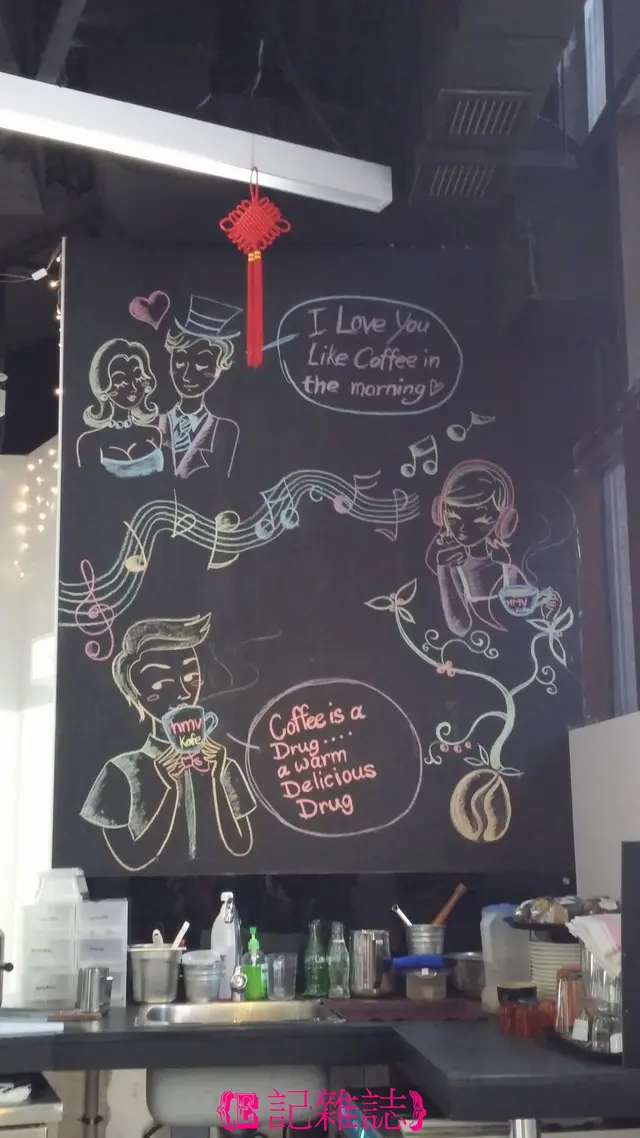 I Love You
Like Coffee in
the morning
HMV
hmv
Kafe
Coffee is a
Drug....
a warm
Delicious
Drug
{E記雜誌}